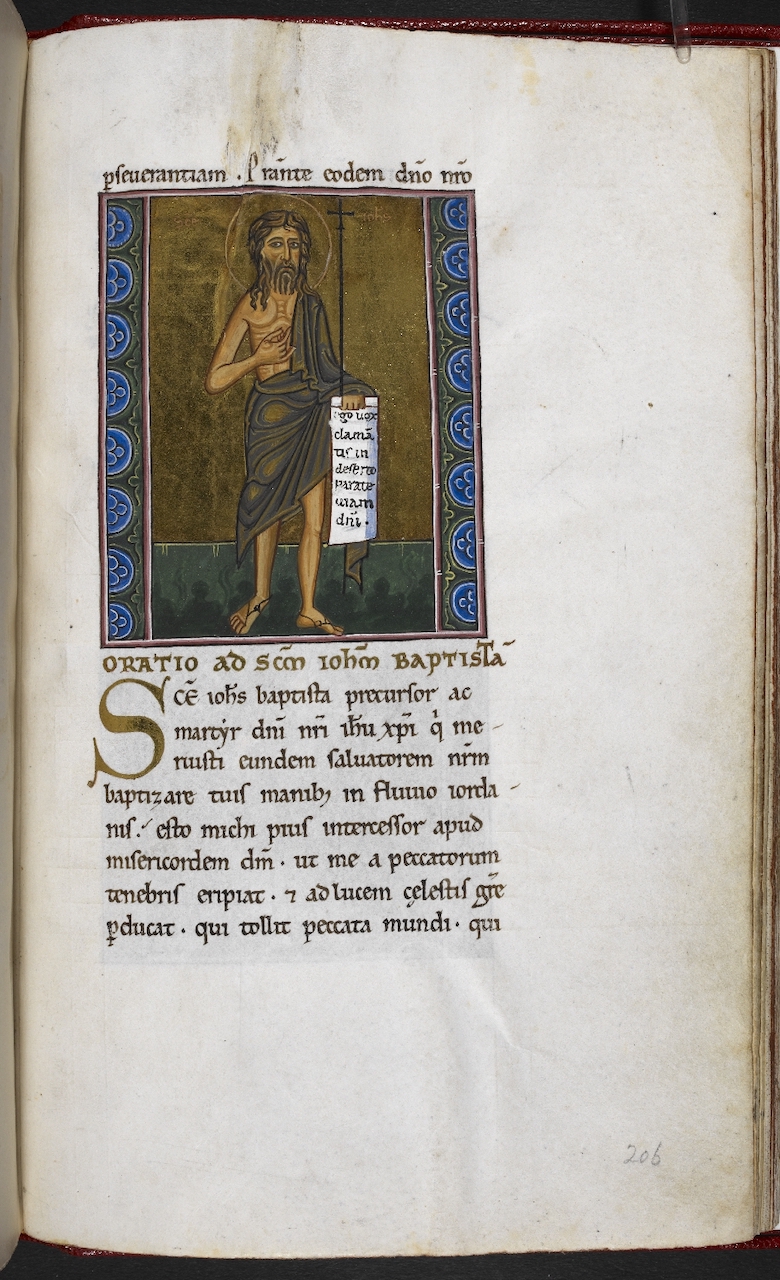 ꝑseuerantiam . Prãnte eodem dño nr̃o
iohs
ego uox
clamã
tis in
deserto
parate
uiam
dñi .
ORATIO AD SC̃M IOHM̃ BAPTISTÃ
SCẼ ioh̃s baptista precursor ac
martyr dñi nr̃i ih̃u xp̃i q̇ me-
ruisti eundem saluatorem nr̃m
baptizare tuis manibꝫ in fluuio iorda-
nis. esto michi pius intercessor apud
misericordem dm̃ . ut me a peccatorum
tenebris eripiat . ⁊ ad lucem cęlestis gr̃e
ꝑducat . qui tollit peccata mundi . qui
206